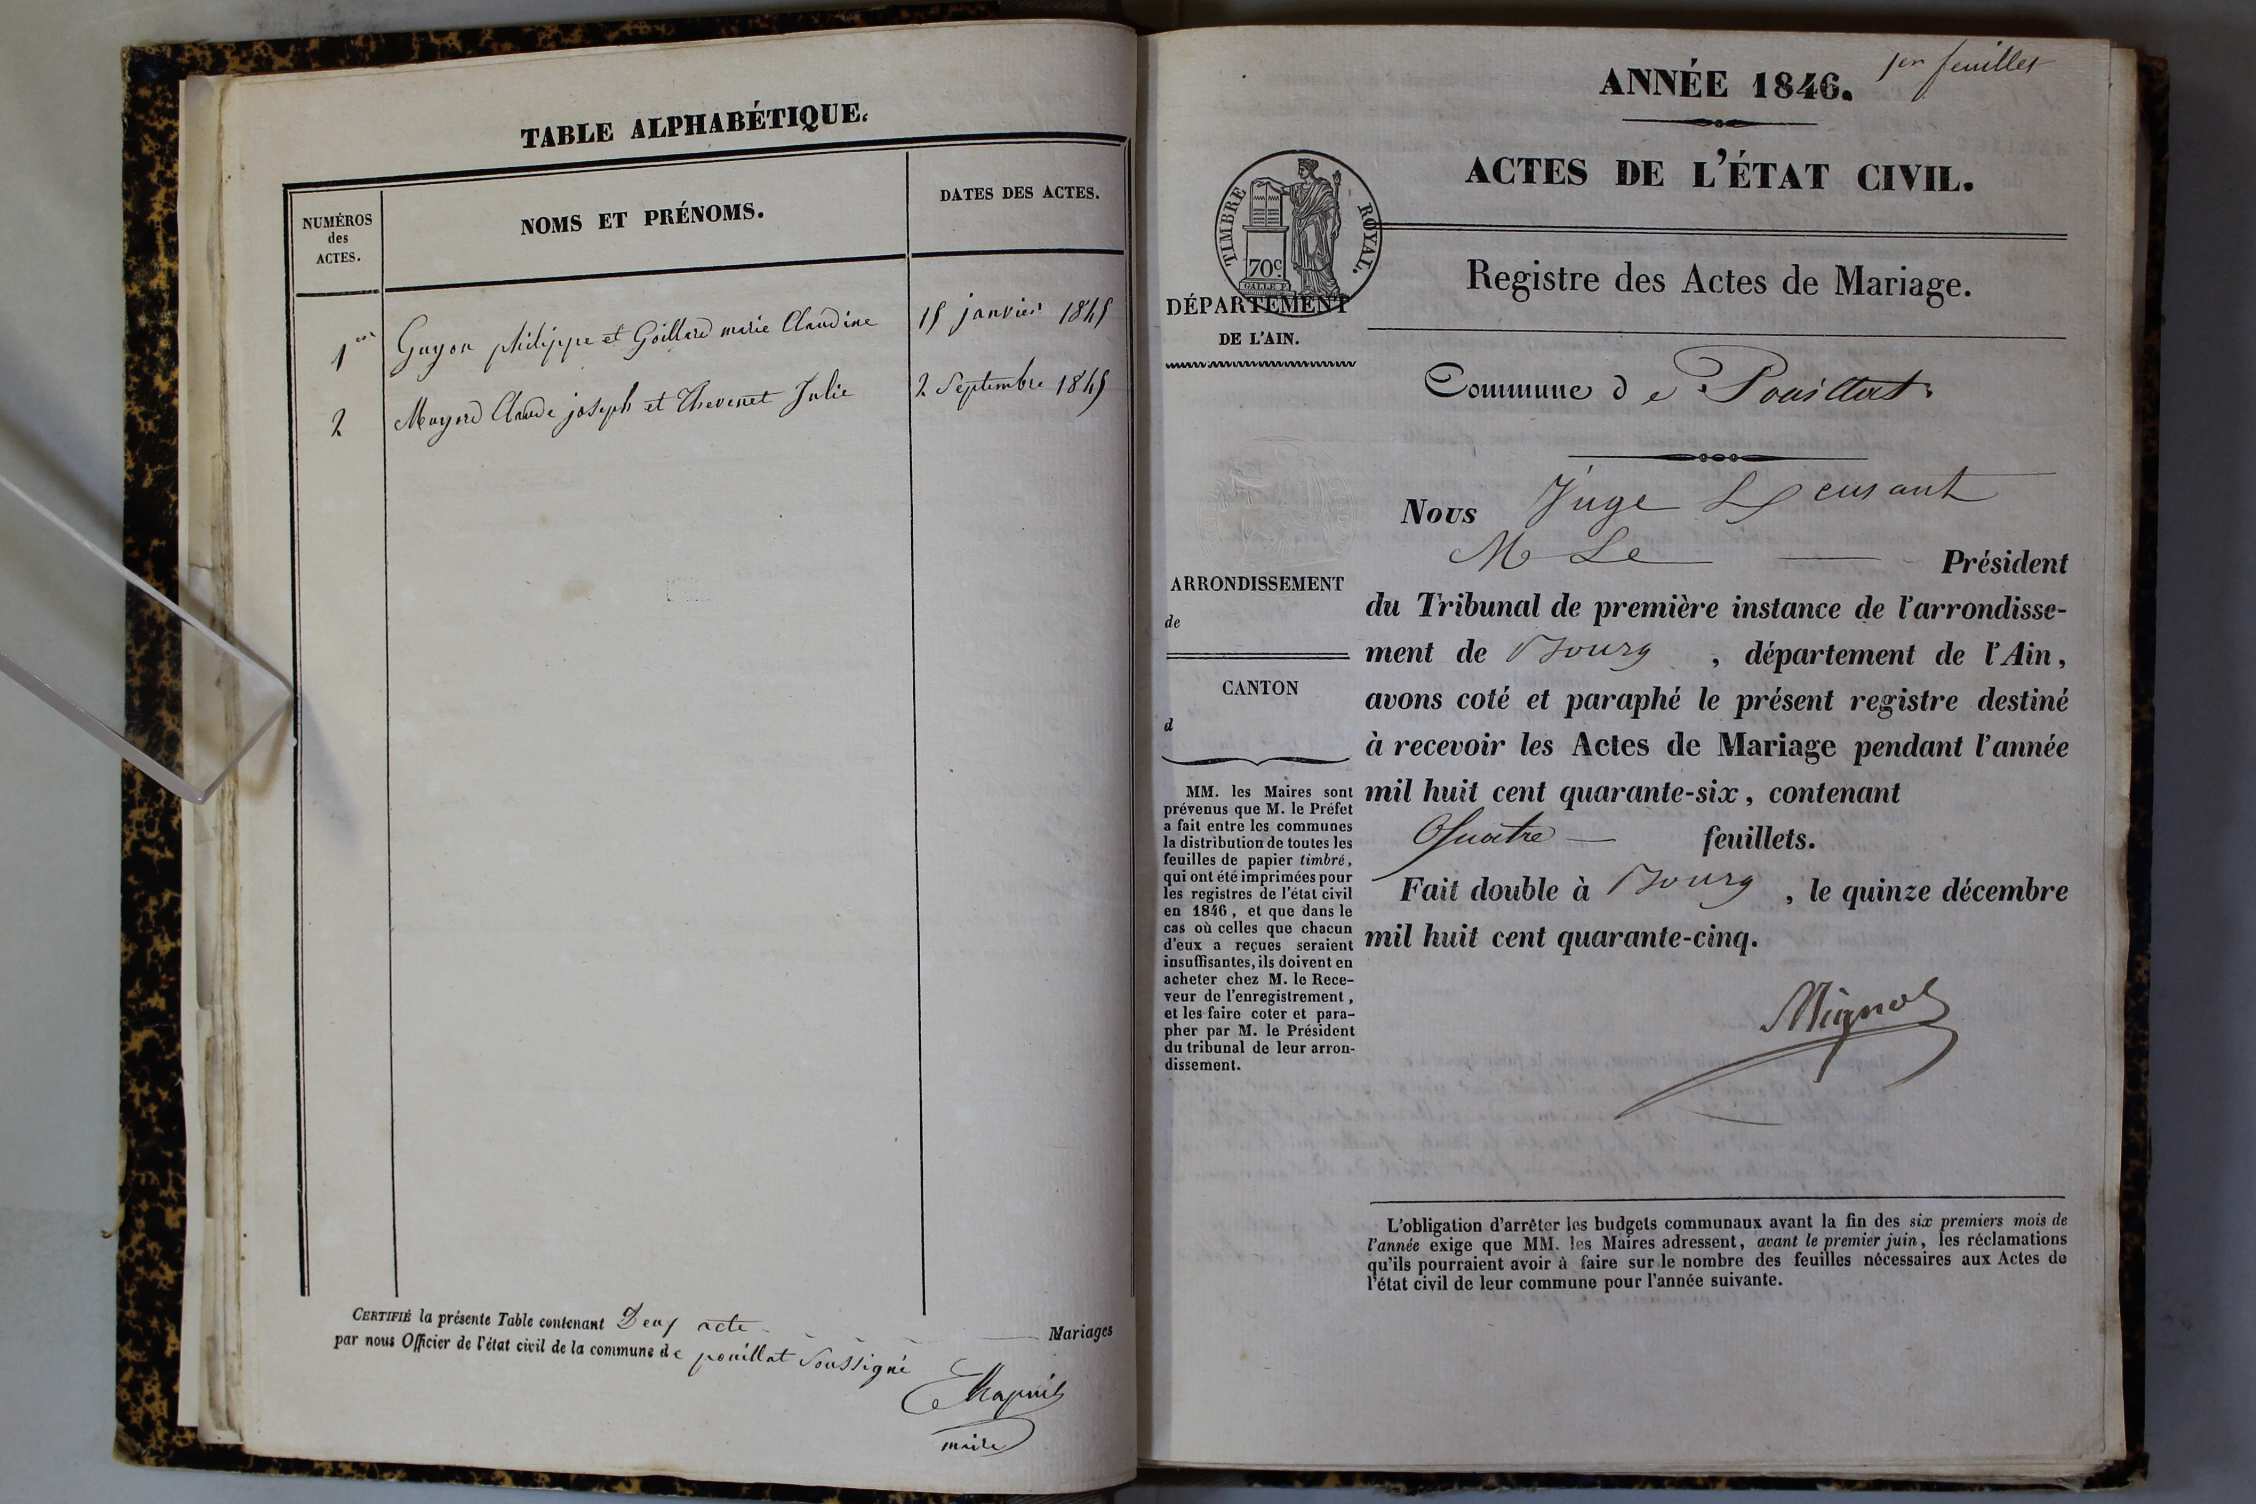 TABLE ALPHABÉTIQUE.
NUMÉROS
des
ACTES.
NOMS ET PRÉNOMS.
DATES DES ACTES.
1er Guyon philippe et Goillard marie Claudine 15 janvier 1845
2 Moyard Claude joseph et Thevenet Julie 2 Septembre 1845
CERTIFIÉ la présente Table contenant Deux acte Mariages
par nous Officier de l'état civil de la commune de pouillat soussigné
maire
1er feuillet
ANNÉE 1846.
ACTES DE L'ÉTAT CIVIL.
TIMBRE ROYAL.
70c
DÉPARTEMENT
DE L'AIN.
Registre des Actes de Mariage.
Commune de Pouillat
Nous Juge
M Le Président
du Tribunal de première instance de l'arrondisse-
ment de Bourg , département de l'Ain,
avons coté et paraphé le présent registre destiné
à recevoir les Actes de Mariage pendant l'année
mil huit cent quarante-six, contenant
Quatre feuillets.
Fait double à Bourg , le quinze décembre
mil huit cent quarante-cinq.
Mignot
ARRONDISSEMENT
de
CANTON
d
MM. les Maires sont
prévenus que M. le Préfet
a fait entre les communes
la distribution de toutes les
feuilles de papier timbré,
qui ont été imprimées pour
les registres de l'état civil
en 1846, et que dans le
cas où celles que chacun
d'eux a reçues seraient
insuffisantes, ils doivent en
acheter chez M. le Rece-
veur de l'enregistrement,
et les faire coter et para-
pher par M. le Président
du tribunal de leur arron-
dissement.
L'obligation d'arrêter les budgets communaux avant la fin des six premiers mois de
l'année exige que MM. les Maires adressent, avant le premier juin, les réclamations
qu'ils pourraient avoir à faire sur le nombre des feuilles nécessaires aux Actes de
l'état civil de leur commune pour l'année suivante.